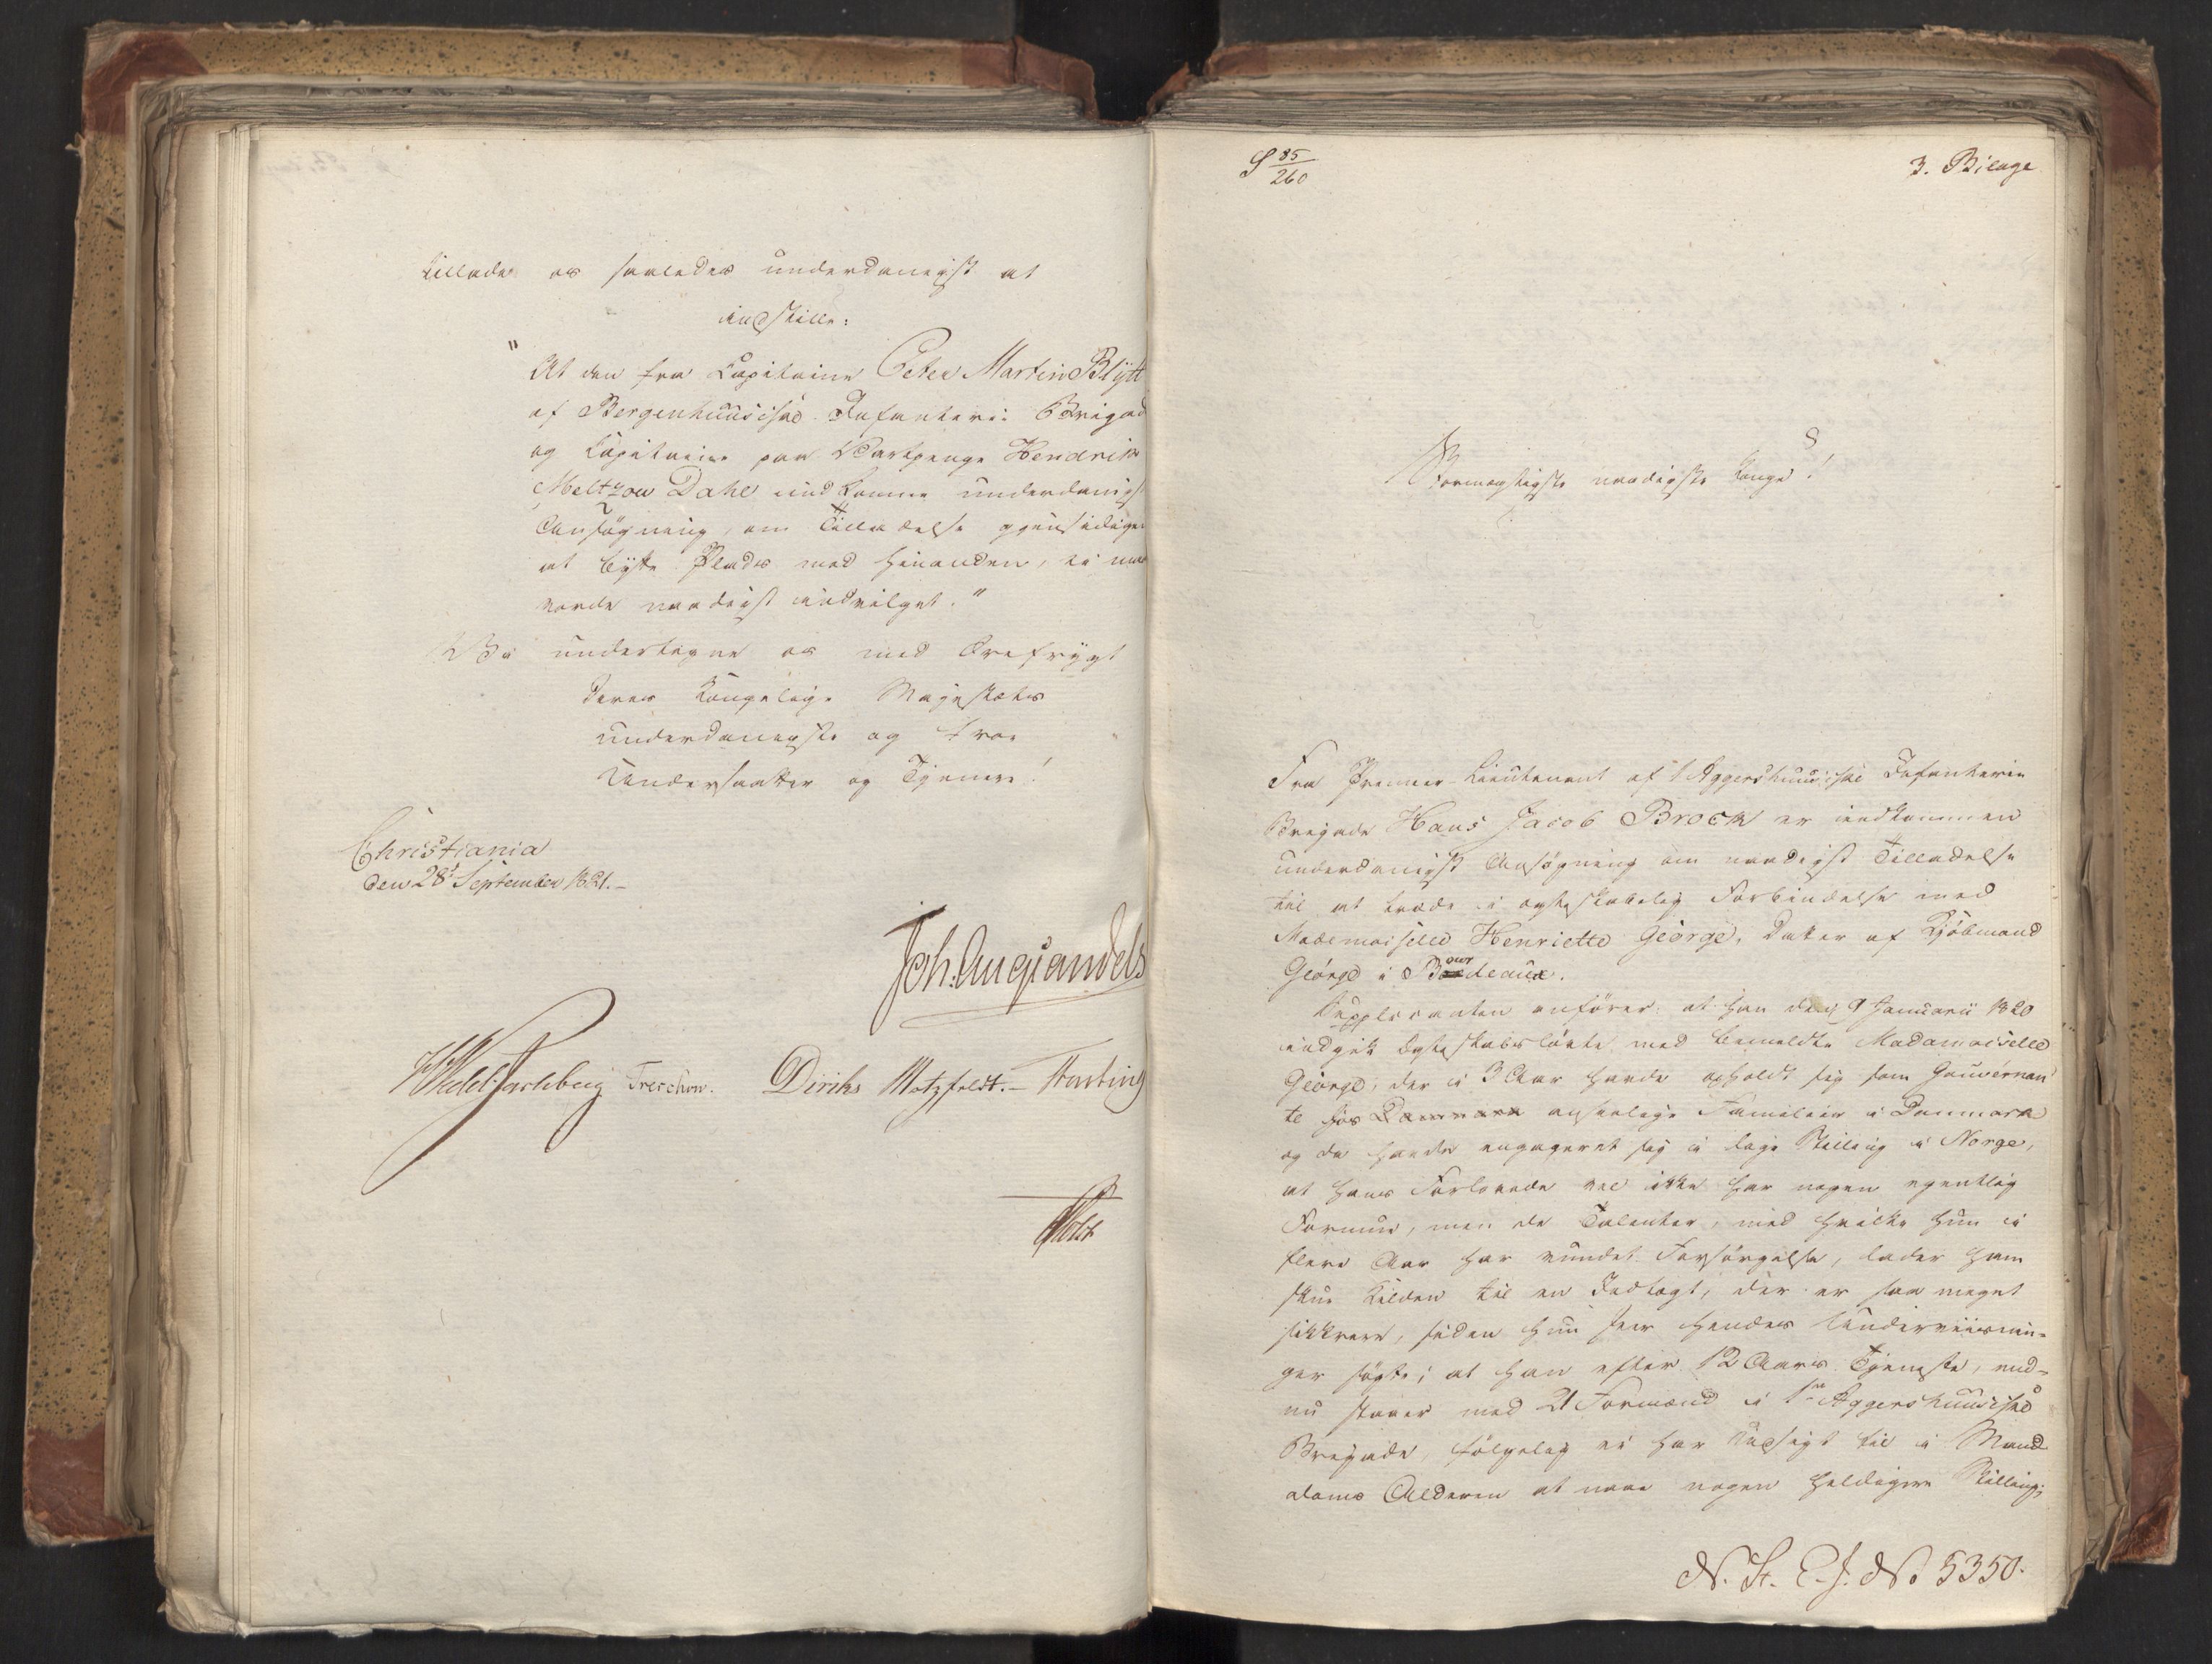 tillade os saaledes underdanigst at
indstille:
"At den fra Capitaine Peter Martin Blÿtt
af Bergenhuusiske Infanterie Brigad
og Capitaine paa Vartpenge Hendrik
Meltzow Dahl indkomne underdanigst
Ansøgning, om Tilladelse gjensidigen
at bytte Plads med hinanden, ei maa
vorde naadigst indvilget."
Vi undertegne os med Ærefrygt
Deres Kongelige Majestæts
underdanigste og troe
Undersaatter og Tjenere!
Christiania
den 28de September 1821.-
Joh: Aug: Sandels
HWedel Jarlsberg Treschow. Diriks Motzfeldt.- Harting
Holst
S 85/260
3. Bilage
Stormægtigste naadigste Konge!
Fra Premier-Lieutenant af 1 Aggershuusiske Infanterie
Brigade Hans Jacob Brock er indkommen
underdanigst Ansøgning om naadigst Tilladelse
til at træde i ægteskabelig Forbindelse med
Mademoiselle Henriette George, Datter af Kjöbmand
George i Bourdeaux.
Supplicanten anförer: at han den 9 Januarii 1820
indgik Ægteskabslövte med bemeldte Madamoiselle
George, der i 3 Aar havde opholdt sig som Gouvernan
te hos Danmark anseelige Familier i Danmark
og da havde engageret sig i lige Stilling i Norge,
at hans Forlovede vel ikke har nogen egentlig
Formue, men de Talenter, med hvilke hun i
flere Aar har vundet Forsörgelse, lader ham
skue Kilden til en Indtægt, der er saa meget
sikkrere, siden hun seer hendes Underviisnin-
ger sögte; at han efter 12 Aars Tjeneste, end-
nu staaer med 21 Formænd i 1ste Aggershuusiske
Brigade, fölgelig ei har Udsigt til i Mand
doms Alderen at naae nogen heldigere Stilling;
N. St. E. J. No 5350.